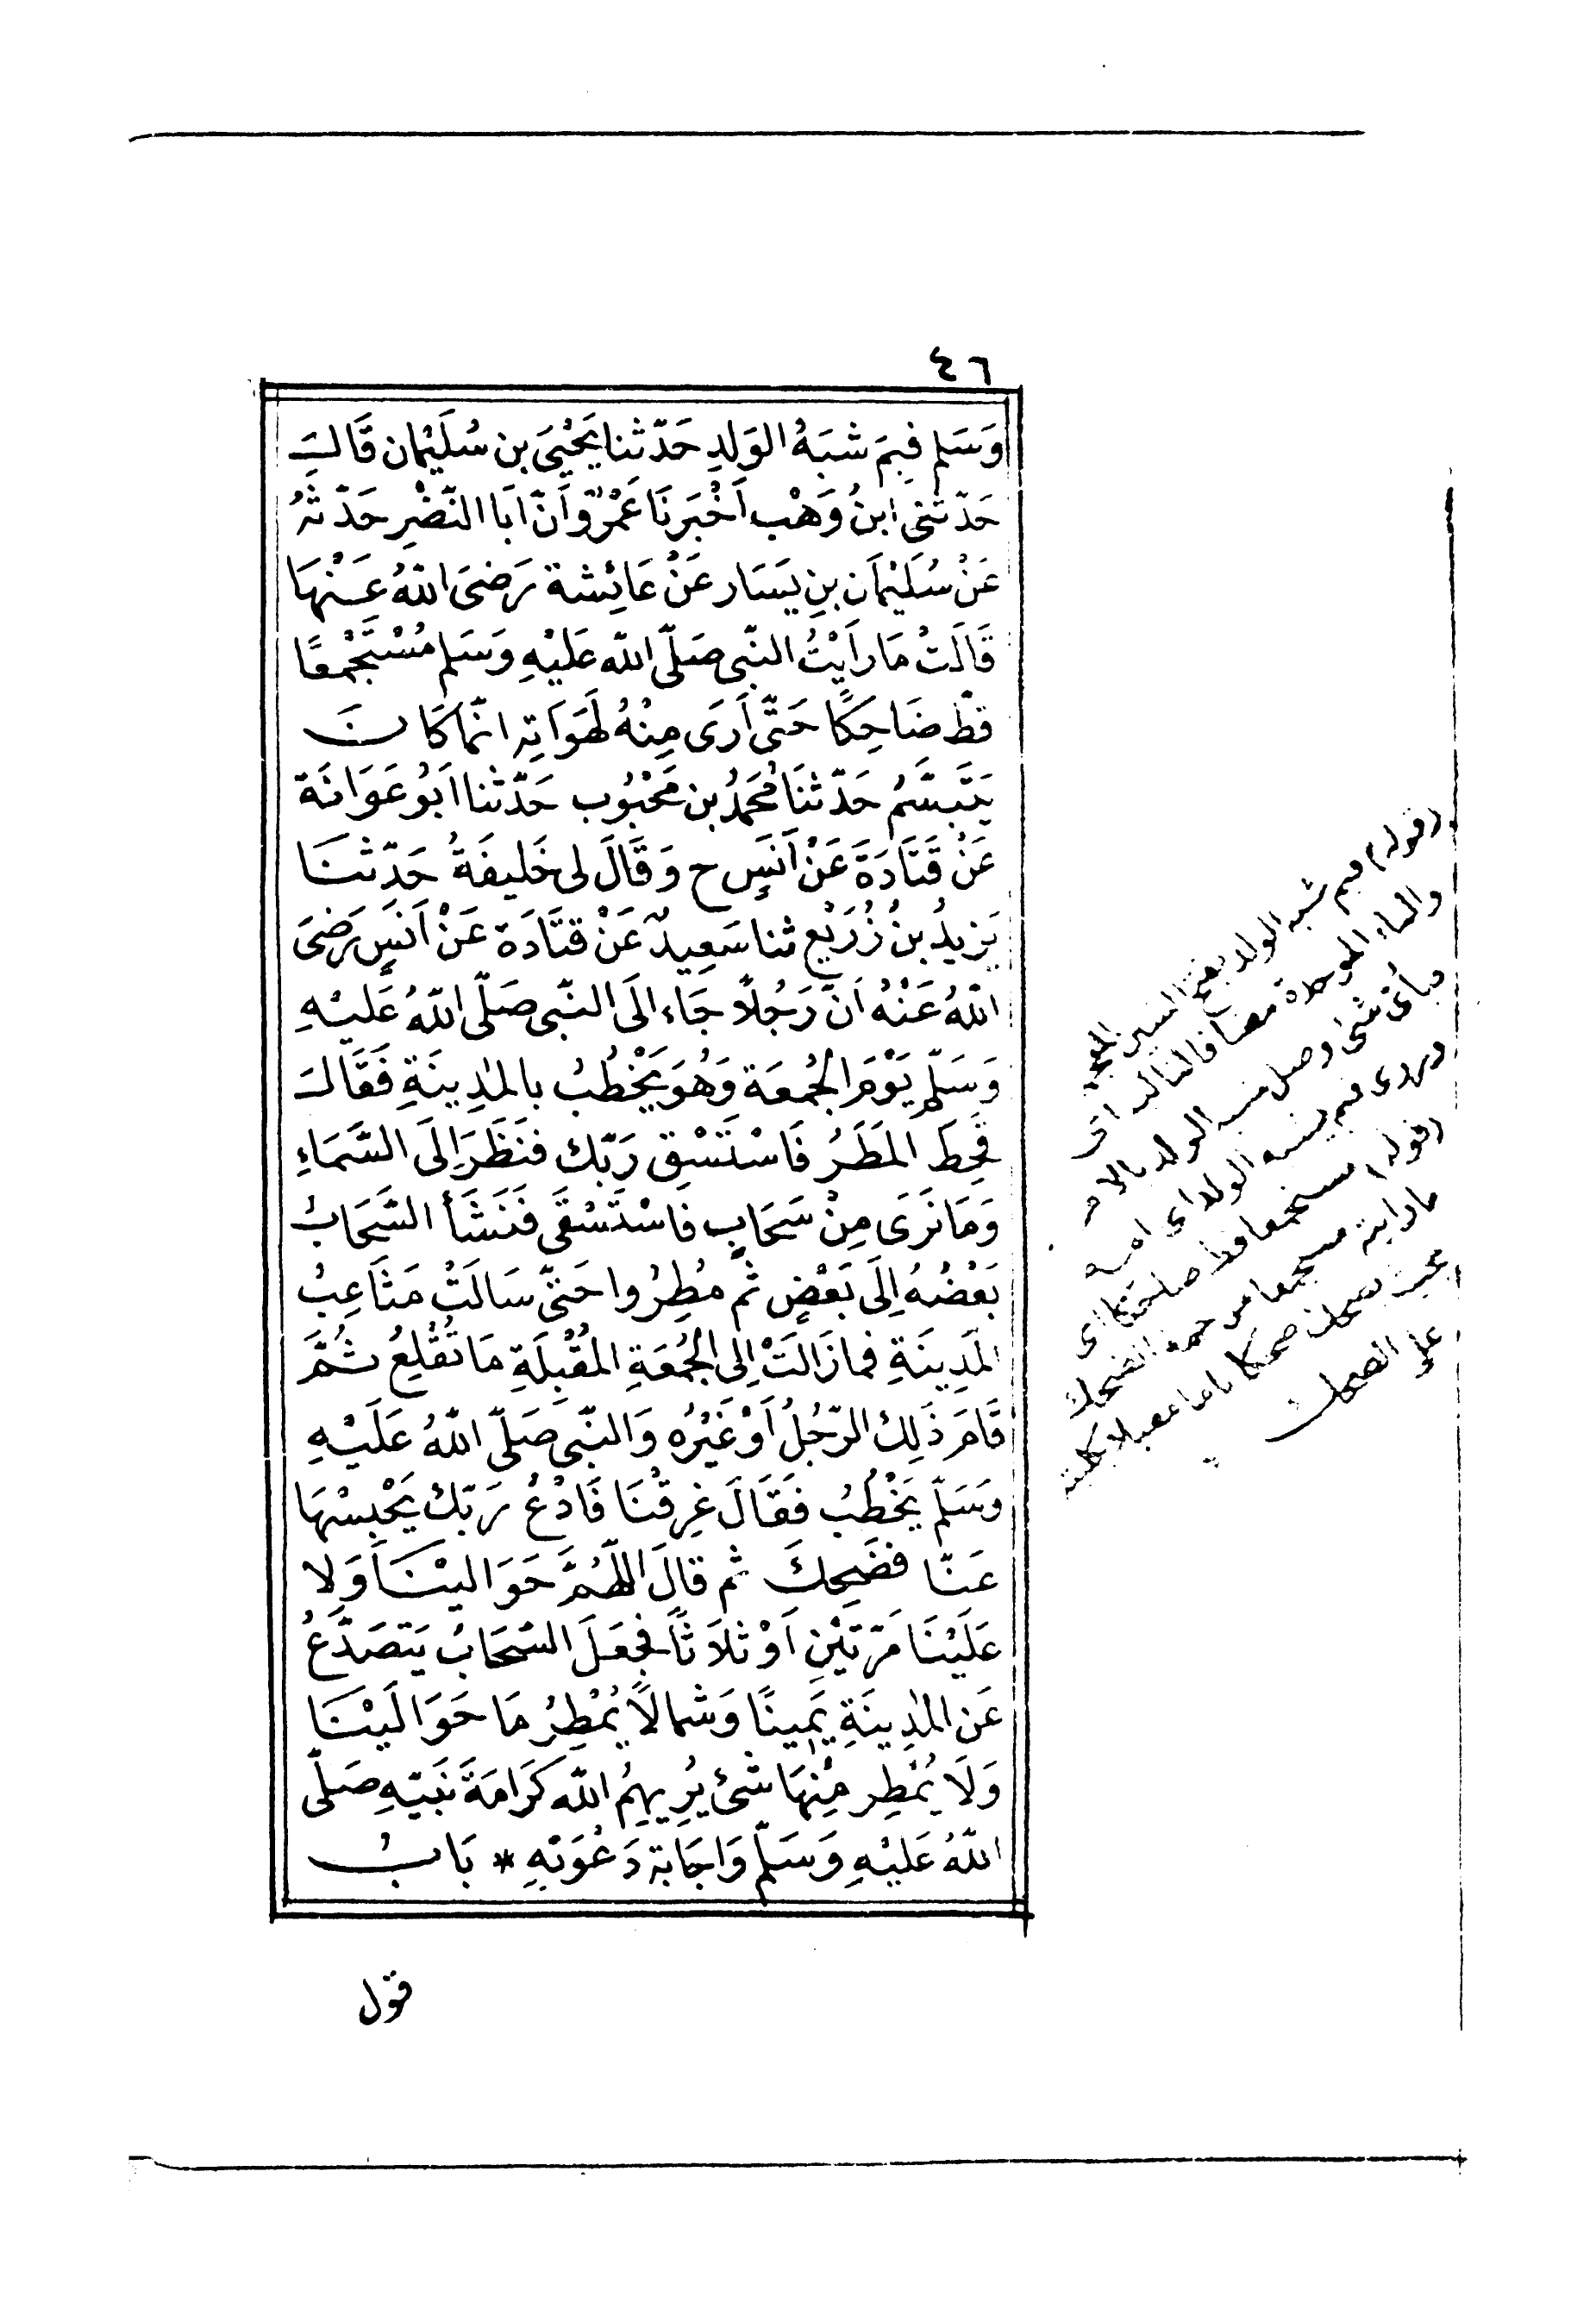 ٤٦
وَسَلم فِبِمَ شبَهُ الوَلدِ حَدّثنا يَحْيَى بن سُلَيْمان قَالَ
حَدّثنى ابنُ وَهْب أَخْبَرنَا عَمْرٌو أَنّ اَبَا النّضْرِ حَدّثهُ
عَنْ سُلَيْمَان بنِ يَسَار عَنْ عَائِشة رَضىَ اللّهُ عَنْهَا
قَالَتْ مَا رَاَيْتُ النّبى صَلّى اللّه عَليْهِ وَسَلم مُسْتَجْمِعًا
قطّ ضَاحِكًا حَتّى أَرَى مِنْهُ لَهَوَاتِه انّما كَانَ
يَتَبسَّمُ حَدّثنَا مُحَمدُ بن مَحْبُوب حَدّثنا اَبُو عَوَانَة
عَنْ قَتَادَةَ عَنْ اَنَسٍ ح وَقَالَ لى خَليفَةُ حَدّثنَا
يَزيدُ بنُ زُرَيْعٍ ثنا سَعِيدٌ عَنْ قتَادَة عَنْ اَنَسٍ رَضىَ
اللّهُ عَنْهُ انَّ رَجُلاً جَاء الَى النّبى صَلّى اللّهُ عَليْهِ
وَسَلّم يَوْمَ الجُمعَة وَهُوَ يَخْطُبُ بالمدِينَةِ فَقَالَ
قحِطَ المَطَرُ فَاسْتَسْقِ رَبّك فنَظَرَ إِلَى السَّمَاءِ
وَمَا نَرَى مِنْ سَحَابٍ فَاسْتَسْقَى فَنَشَأ السَّحَابُ
بَعْضُهُ اِلَى بَعْضٍ ثم مُطِرُوا حَتىّ سَالَتْ مَثَاعِبُ
المَدِينَةِ فمازَالَتْ اِلى الجُمُعَةِ المُقْبِلَةِ مَا تُقْلِعُ ثُمَّ
قَامَ ذَلِك الرّجُلُ أَوْ غَيْرُه وَالنّبى صَلّى اللّهُ عَلَيْهِ
وَسَلّم يَخْطُبُ فقَالَ غرِقْنَا فَادْعُ رَبّك يَحْبِسْهَا
عَنّا فضَحِكَ ثم قالَ اللّهُمَّ حَوَاليْنَا وَلا
عَلَيْنَا مَرّتَيْنِ اَوْ ثلاَثاً فجَعَلَ السّحَابُ يَتصَدَّعُ
عَن المدِينَةِ يَمِينًا وَشمالاً يُمْطِرُ مَا حَوَالَيْنَا
وَلَا يُمْطِر مِنْهَا شئ يُرِيهِمُ اللّه كَرَامَةَ نَبيّهِ صَلّى
اللّهُ عَليْهِ وَسَلّم وَاجَابَة دَعْوَتِهِ * بَابُ
قول
(قوله) فبم شبه الولد بفتح الشين المعجمة
والباء الموحدة مضافا لتاليه اى
فبأى شئ وصل شبه الولد بالام
ويروى فبم يشبه الولد اى امه
(قوله) مستجمعا قط ضاحكا اى
ما رايته مستجمعا من جهة الضحك
بحيث يضحك ضحكا تاما مقبلا بكليته
على الضحك